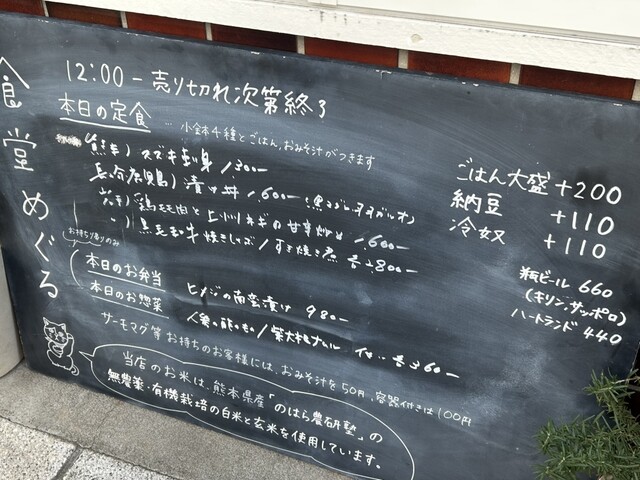 食堂めぐる
12:00－売り切れ次第終了
本日の定食
小鉢4種とごはん、おみそ汁がつきます
熊本)スズキ
漬け丼 1,600-
鶏もも肉と上州ネギの甘辛炒め 1,600-
黒毛和牛焼きしゃぶ/すき焼き風 各2,800-
ごはん大盛+200
納豆 +110
冷奴 +110
瓶ビール 660
(キリン、サッポロ)
ハートランド 440
お持ち帰りのみ
本日のお弁当 ヒメジの南蛮漬け 980-
本日のお惣菜
サーモマグ等お持ちのお客様には、おみそ汁を50円、容器付きは100円
当店のお米は、熊本県産「のはら農研塾」の
無農薬・有機栽培の白米と玄米を使用しています。